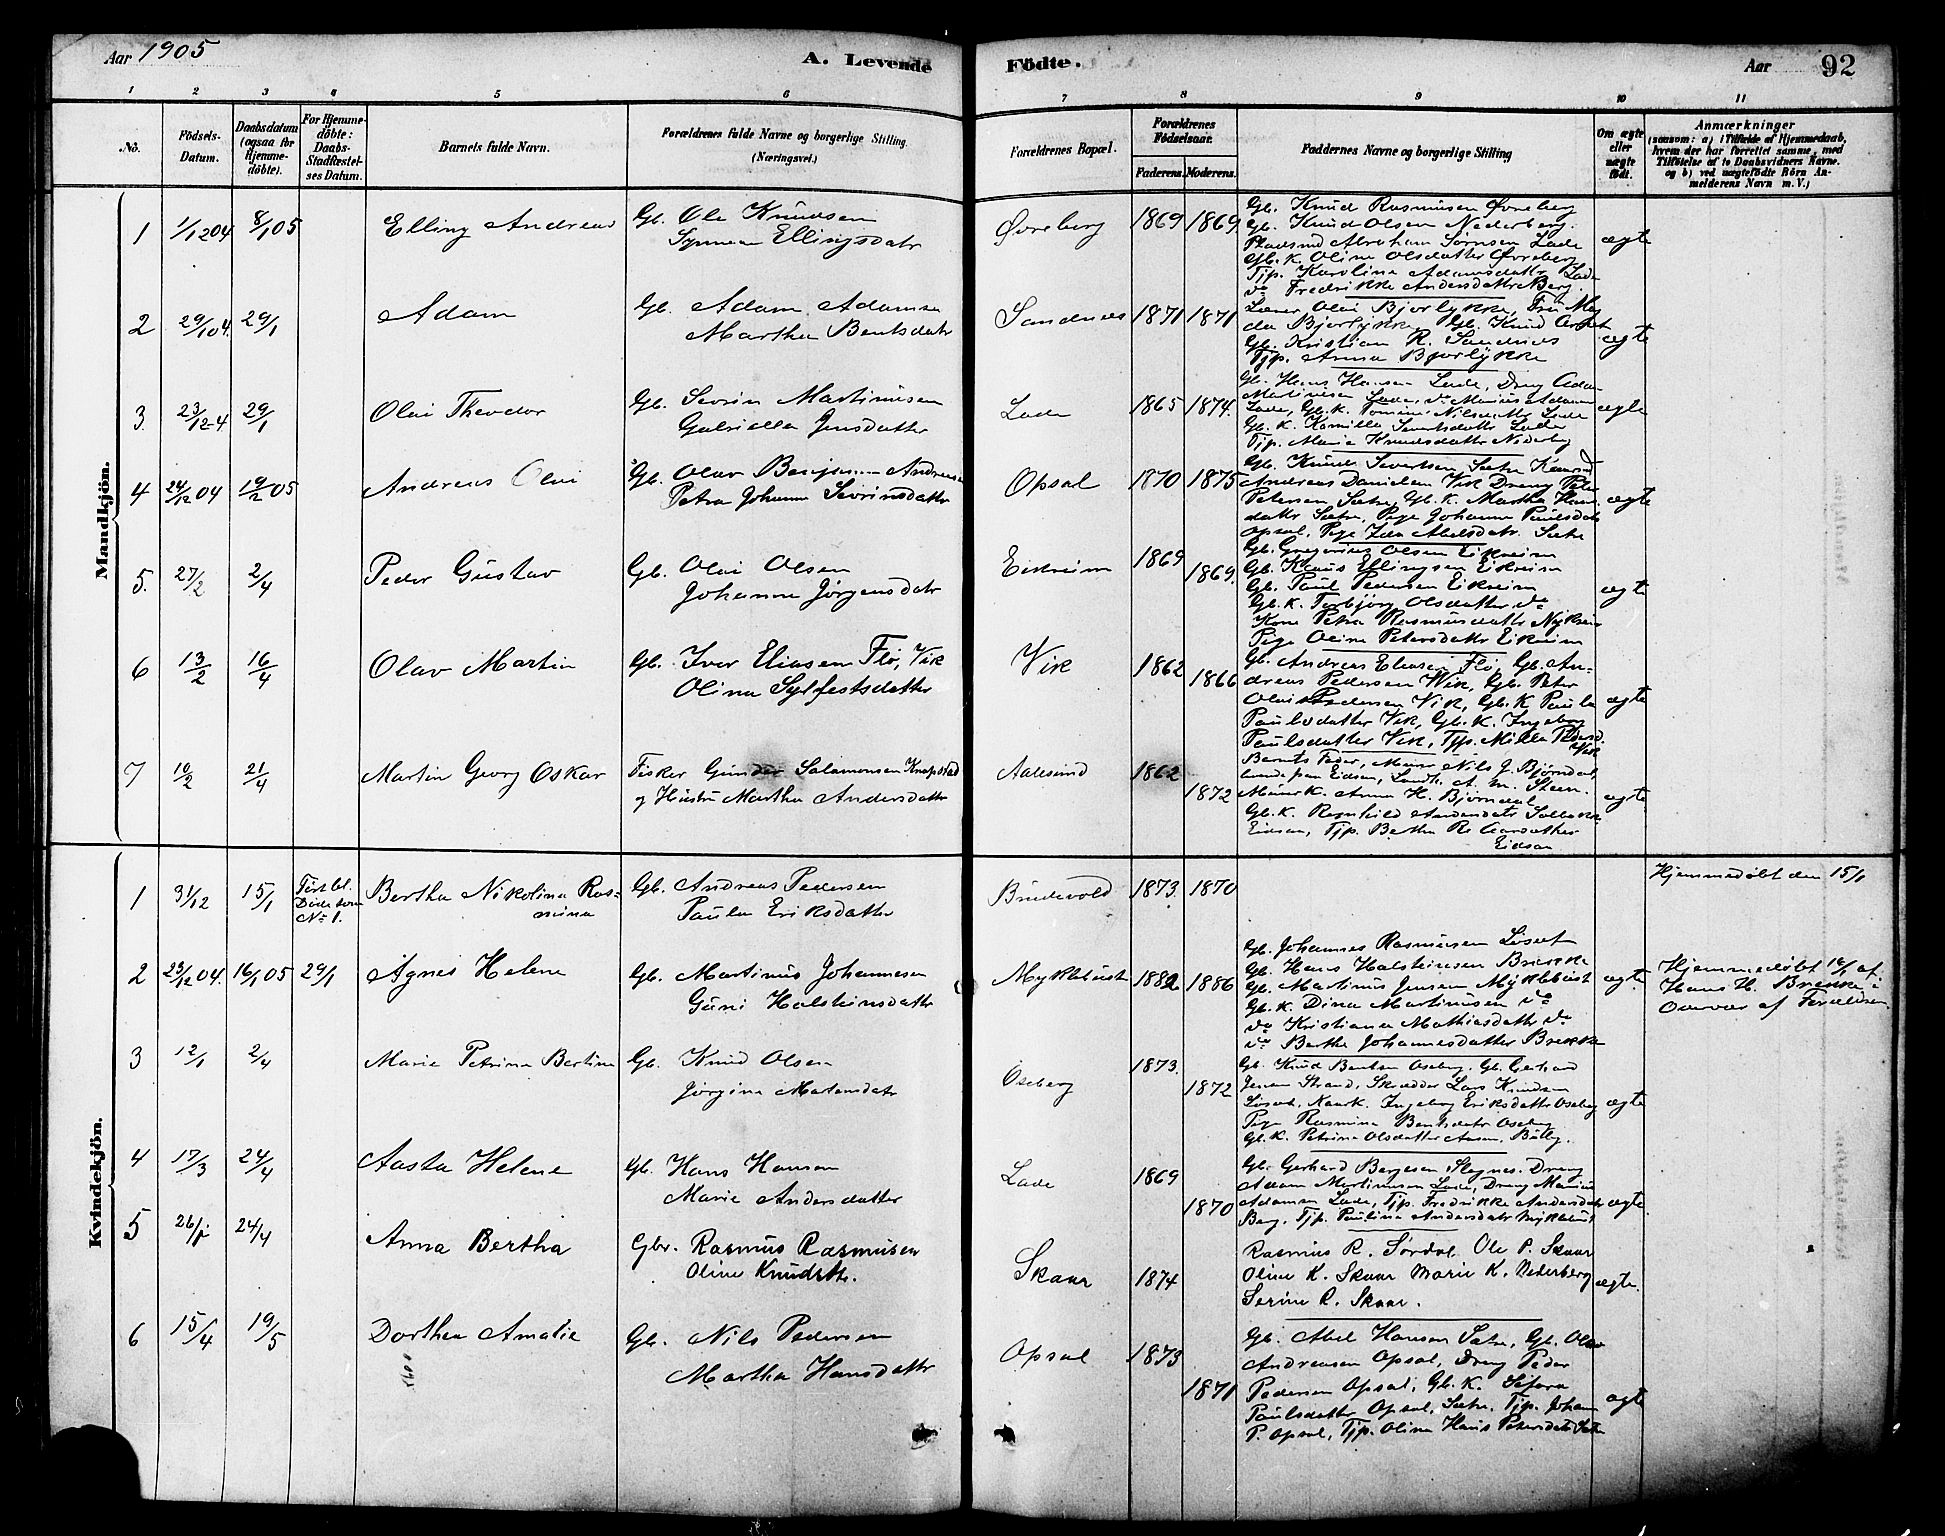 Aar 1905
A. Levende
Födte.
Aar
92
1 2 3 4 5 6 7 8 9 10 11
No.
Födsels-Datum.
Daabsdatum (ogsaa for Hjemmedöbte).
For Hjemmedöbte: Daabs-Stadfæstelses Datum.
Barnets fulde Navn.
Forældrenes fulde Navne og borgerlige Stilling. (Næringsvei.)
Forældrenes Bopæl.
Forældrenes Födselsaar.
Faderens. Moderens.
Faddernes Navne og borgerlige Stilling
Om ægte eller uægte födt.
Anmærkninger
(saasom: a) i Tilfælde af Hjemmedaab, hvem der har forrettet samme, med Tilföielse af to Daabsvidners Navne. og b) ved uægtefödte Börn Anmelderens Navn m. V.)
Mandkjön.
1 1/12 04 8/1 05 Elling Andreas Gb. Ole Knudsen
Synnea Ellingsdatr
Øvreberg 1869 1869
Gb. Knud Rasmusen Øvreberg
Gb. Knud Olsen Nederberg.
Pladsmd Abraham Sörnsen Lade
Gb. K. Oline Olsdatter Øvreberg
Tjp. Karolina Adamsdattr Lade
do Fredrikke Andersdattr Berg.
ægte
2 29/10 4. 29/1 Adam Gb. Adam Adamsen
Martha Bentsdatr
Sandnes 1871 1871
Lærer Olai Bjørlykke, Fru
Bjørlykke, Gb. Knud
Gb. Kristian R. Sandnes
Tjp. Anna Bjørlykke
ægte
3. 23/12 4 29/1 Olai Theodor Gb. Sevrin Martinusen
Gabriella Jensdatter
Lade 1865 1874.
Gb. Hans Hansen Lade, Dreng Adam
Martinusen Lade, do Marius Adamsen
Lade, Gb. K. Nilsdattr Lade
Gb. K. Kamilla Lade
Tjp. Marie Knudsdattr Nederberg
ægte
4 24/12 04 19/2 05 Andreas Olai Gb. Olav Benjamin Andreassen
Petra Johanne Sevrinsdattr
Opsal 1870 1875
Gb. Knud Severtsen Sætre
Andreas Danielsen Vik Dreng Peter
Petersen Sætre, Gb. K. Martha Hans
dattr Sætre, Pige Johanne Paulsdatr
Opsal, Pige Abelsdatr Sætre
ægte
5. 27/2 2/4 Peder Gustav Gb. Olai Olsen
Johanne Jörgensdatr
Eikreim 1869 1869.
Gb. Gregorius Olsen Eikreim
Gb. Klaus Ellingsen Eikreim
Gb. Paul Pedersen Eikreim
Gb. K. Torbjörg Olsdatter do
Kone Petra Rasmusdattr
Pige Oline Petersdattr Eikreim
ægte
6 13/2 16/4 Olav Martin Gb. Iver Eliasen Flö, Vik
Olina Sylfestsdatter
Vik 1862 1866
Gb. Andreas Eliasen Flö, Gb. An-
dreas Pedersen Vik, Gb. Peter
Olai Pedersen Vik, Gb. K Paula
Paulsdatter Vik, Gb. K. Ingeborg
Paulsdatter Vik, Tjp. Milla
Vik
ægte
7 10/2 21/4 Martin Georg Oskar Fisker Gunder Salamonsen Knapstad
og Hustru Martha Andersdattr
Aalesund 1862 1872
Barnets Fader, Murer Nils J. Bjørndal,
Eidsen, Landh. A. M. Steen.
Murerk. Anna H. Bjørndal
Gb. K. Ragnhild
Eidsen, Tjp. Bertha
Eidsen
ægte
Kvindekjön.
1 31/12 15/1 Bertha Nikolina Ras-
mina
Död som
No 1.
Gb. Andreas Pedersen
Paula Eriksdatter
Brudevold 1873. 1870
Hjemmedøbt den 15/1
2 23/12 04. 16/1 05 29/1 Agnes Helene Gb. Martinus Johannesen
Guri Halsteinsdattr
Myklebust 1882 1886
Gb. Johannes Rasmusen Löset
Gb. Hans Halsteinsen Brekke
Gb. Martinus Jensen Myklebust
Gb. K. Dina Martinusen do
do Kristiana Mathiasdattr do
do Berthe Johannesdatter Brekke
ægte
Hjemmedøbt 16/1 af
Hans H. Brekke i
Overvær af Forældrene
3 12/1 2/4 Marie Petrina Bertina Gb. Knud Olsen
Jörgine Martensdatr
Oseberg 1873. 1872
Gb. Knud Bentsen Oseberg, Gb. Gerhard
Jensen Strand, Skrædder Lars Knudsen
Löset, Ingeborg Eriksdattr Oseberg
Pige Rasmina Bentsdatr Oseberg
Gb. K. Petrina Olsdatter Aasen,
ægte
4 17/3 24/4 Aasta Helene Gb. Hans Hansen
Marie Andersdatter
Lade 1869 1870
Gb. Gerhard Bergesen Slagnes. Dreng
Adam Martinusen Lade, Dreng Marius
Adamsen Lade, Tjp. Fredrikke Andersdatr
Berg, Tjp. Paulina Andersdatr Myklebust
ægte.
5 26/1 24/4 Anna Bertha Gbr. Rasmus Rasmusen
Oline Knudsdtr.
Skaar 1874
Rasmus R. Sørdal Ole P. Skaar
Oline K. Skaar Marie K. Nederberg
Serine R. Skaar.
ægte.
6 15/4 19/5 Dorthea Amalie Gb. Nils Pedersen
Martha Hansdattr
Opsal 1873 1871
Gb. Abel Hansen Sætre, Gb. Olav
Andreasen Opsal, Dreng Peder
Pedersen Opsal, Gb. K.
Paulsdatter Opsal, Sætre, Tjp. Johan
P. Opsal, Tjp. Olina Hans Petersdatr Sætre
ægte